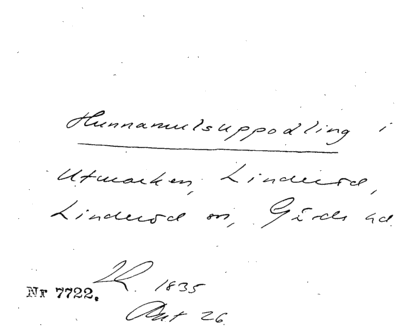 Hunnamulsuppodling i
Utmarken, Linderöd,
Linderöd sn, Gärds hd
1835
Nr 7722.
Akt 26.